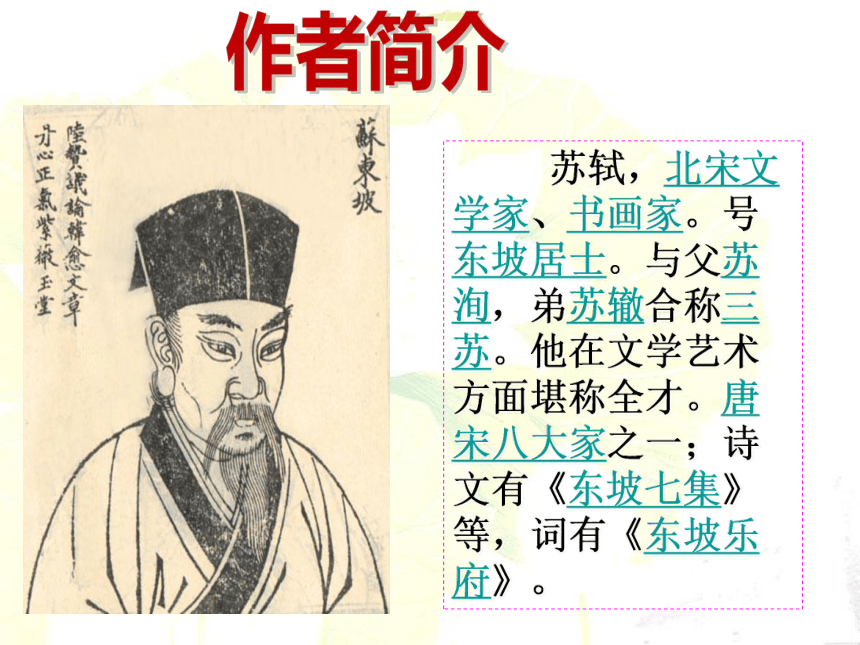 作者简介
蘇東坡
陸贄議論韓愈文章
丹心正氣紫微玉堂
苏轼，北宋文
学家、书画家。号
东坡居士。与父苏
洵，弟苏辙合称三
苏。他在文学艺术
方面堪称全才。唐
宋八大家之一；诗
文有《东坡七集》
等，词有《东坡乐
府》。